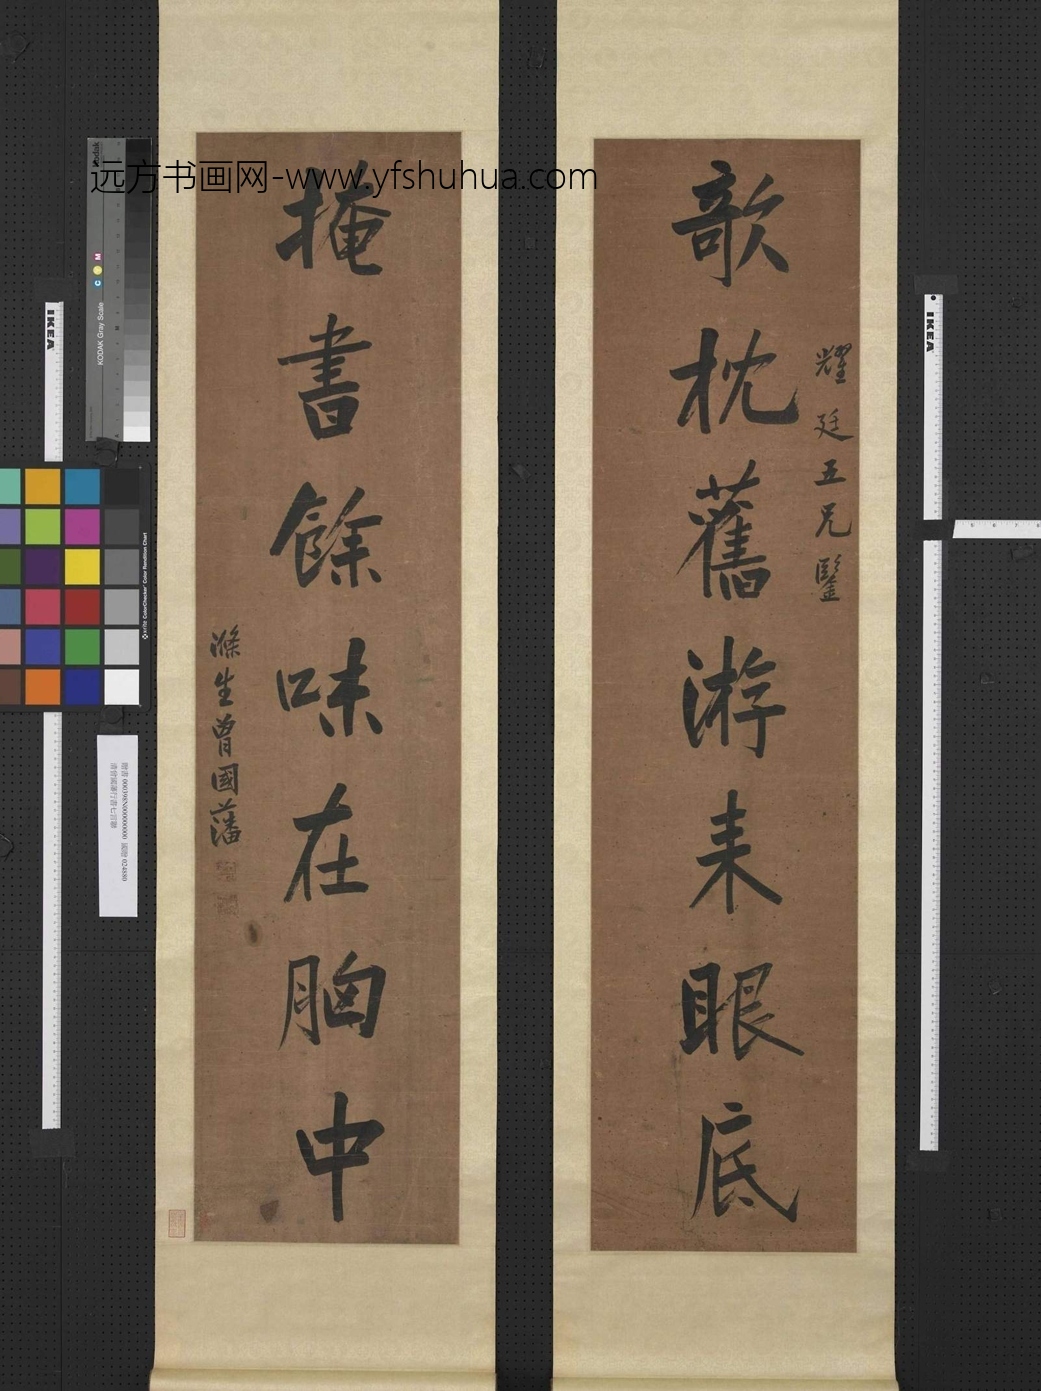 远方书画网-www.yfshuhua.com
耀廷五兄鑒
欹枕舊游来眼底
掩書餘味在胸中
滌生曾國藩
Kodak
KODAK Gray Scale
C Y M
IKEA
IKEA